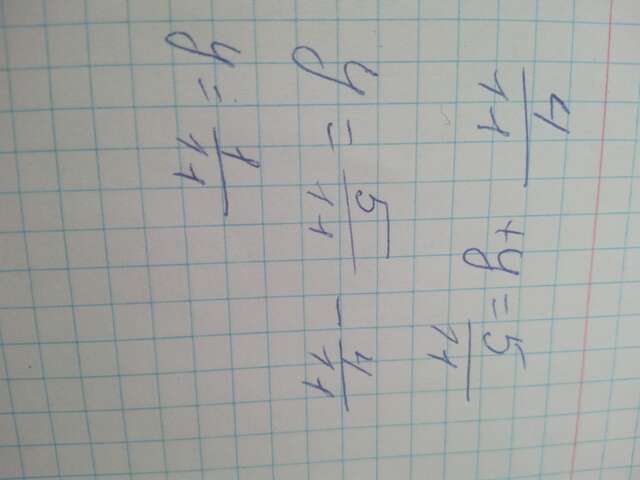 4/11 + y = 5/11
y = 5/11 - 4/11
y = 1/11